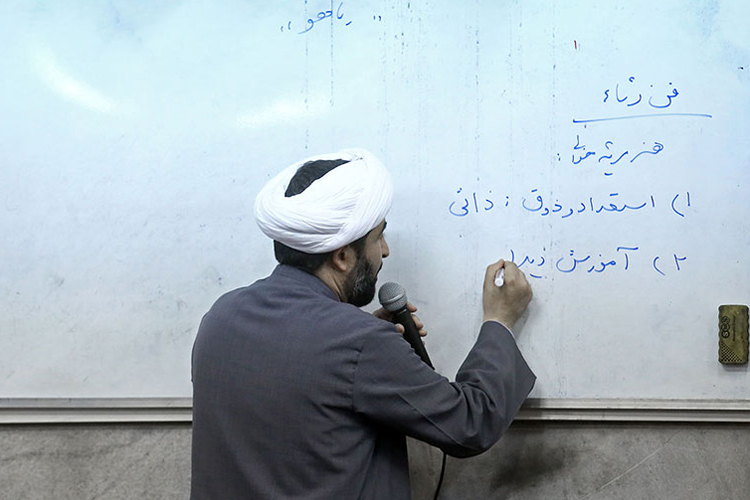 "یا هو"
فن رثاء
هنر مرثیه خوانی :
۱) استعداد و ذوق : ذاتی
۲) آموزش دیدن